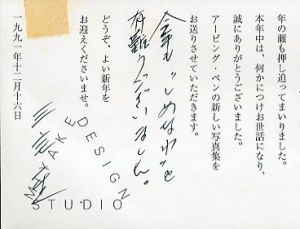 年の瀬も押し迫ってまいりました。
本年中は、何かにつけお世話になり、
誠にありがとうございました。
アーピング・ペンの新しい写真集を
お送りさせていただきます。
有難うございました。
どうぞ、よい新年を
お迎えくださいませ。
一九九一年十二月十六日
MIYAKE DESIGN
STUDIO